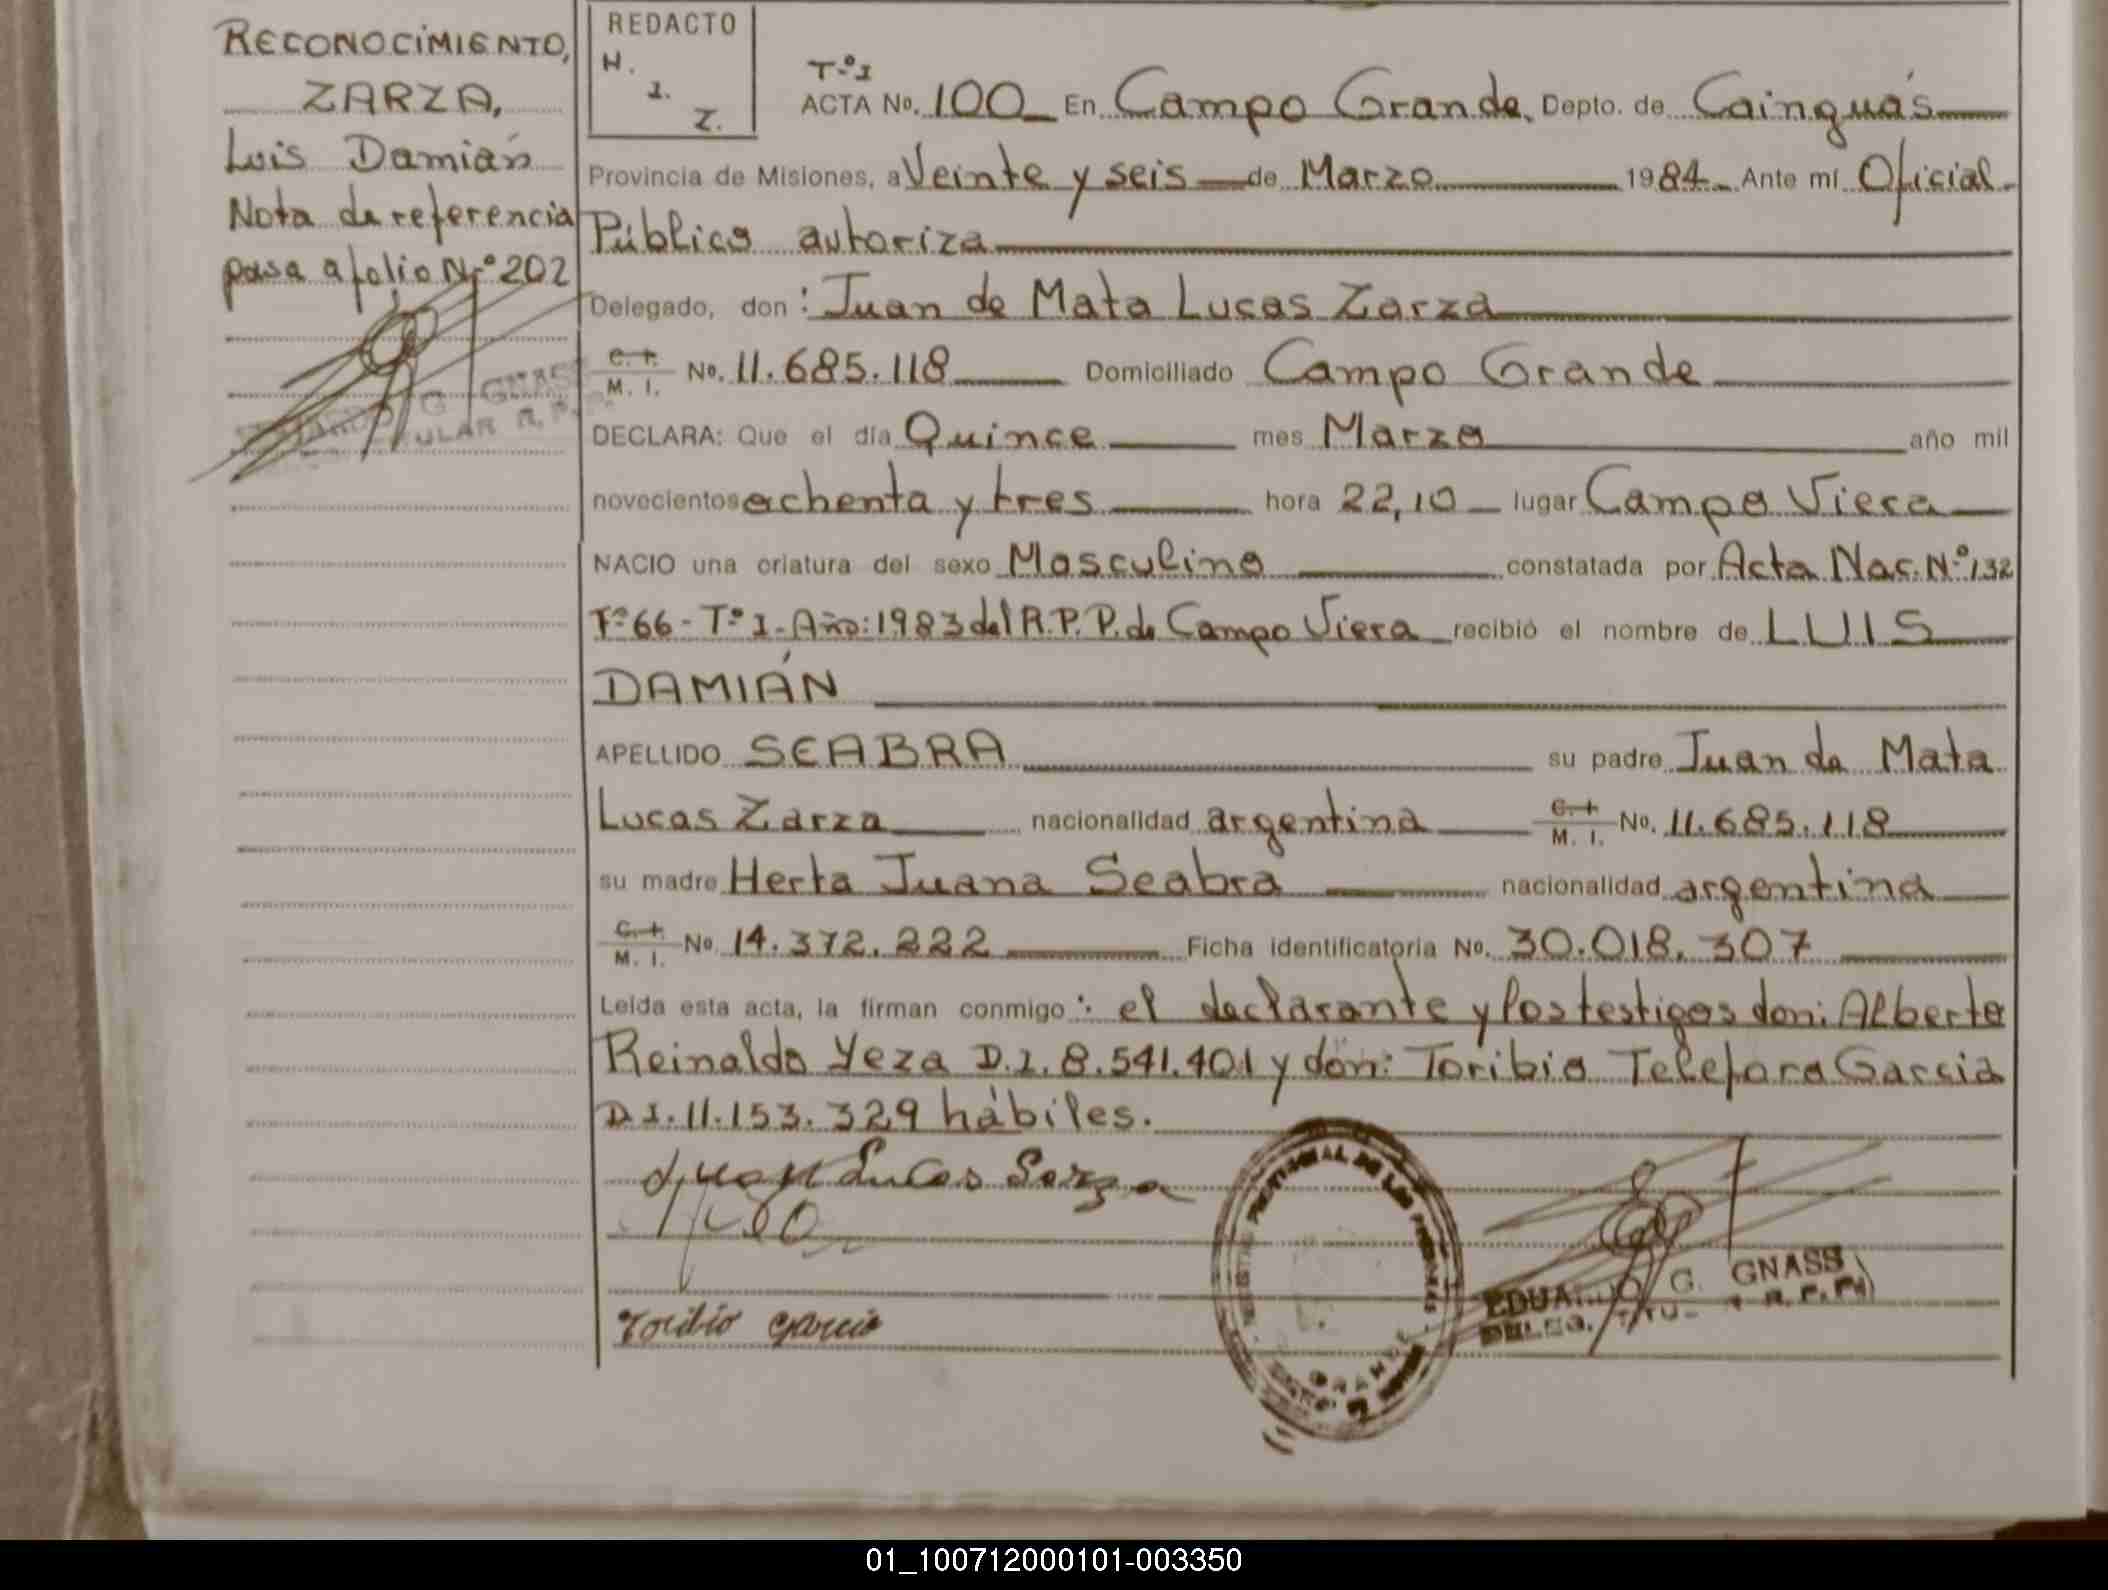 RECONOCIMIENTO,
ZARZA,
Luis Damián
Nota de referencia
pasa a folio Nº 202
G. GNASS
REDACTO
H.
I.
Z.
Tº I
ACTA No. 100 En Campo Grande, Depto. de Cainguás
Provincia de Misiones, a Veinte y seis de Marzo 1984 Ante mí Oficial
Público autoriza
Delegado, don: Juan de Mata Lucas Zarza
C. I. M. I. No. 11.685.118 Domiciliado Campo Grande
DECLARA: Que el día Quince mes Marzo año mil
novecientos ochenta y tres hora 22,10 lugar Campo Viera
NACIO una criatura del sexo Masculino constatada por Acta Nac. Nº 132
Fº 66 - Tº I - Año: 1983 del R.P.P. de Campo Viera recibió el nombre de LUIS
DAMIÁN
APELLIDO SEABRA su padre Juan de Mata
Lucas Zarza nacionalidad argentina C. I. M. I. No. 11.685.118
su madre Herta Juana Seabra nacionalidad argentina
C. I. M. I. No 14.372.222 Ficha identificatoria No. 30.018.307
Leida esta acta, la firman conmigo: el declarante y los testigos don: Alberto
Reinaldo Yeza D.I. 8.541.401 y don: Toribio Telefora Garcia
D.I. 11.153.329 hábiles.
Juan Lucas Sarza
Toribio Garcia
EDUARDO G. GNASS
DELEG.
01_100712000101-003350